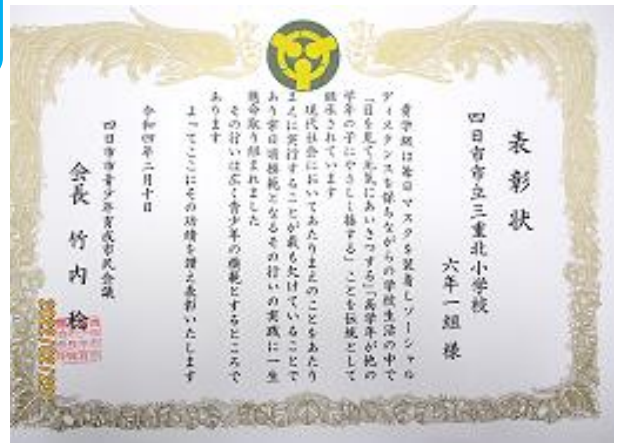 表彰状
四日市市立三重北小学校
六年一組 様
貴学級は毎日マスクを装着しソーシャル
ディスタンスを保ちながらの学校生活の中で
「目を見て元気にあいさつする」「高学年が他の
学年の子にやさしく接する」ことを伝統として
継承されています
現代社会においてあたりまえのことをあたり
まえに実行することが最も欠けていることで
あり常日頃模範となるその行いの実践に一生
懸命取り組まれました
その行いは広く青少年の模範とするところで
あります
よってここにその功績を讃え表彰いたします
令和四年二月十日
四日市市青少年育成市民会議
会長 竹内